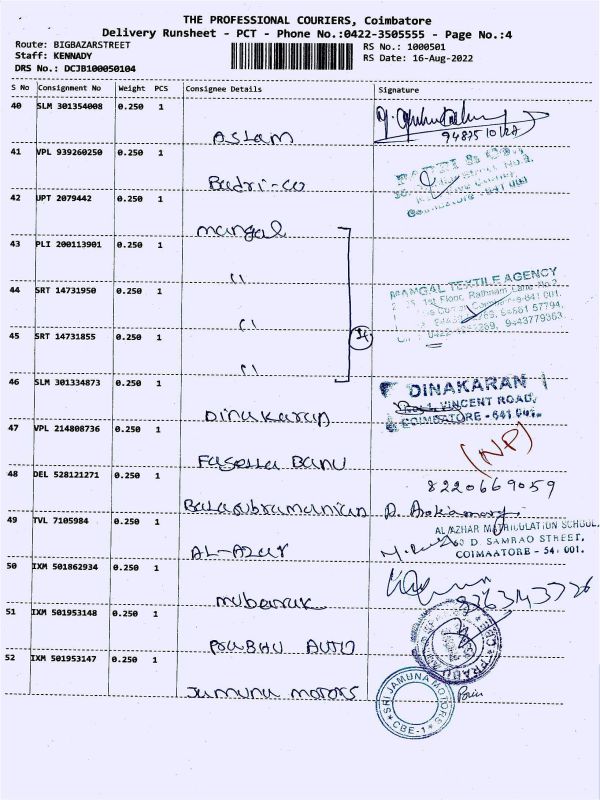 THE PROFESSIONAL COURIERS, Coimbatore
Delivery Runsheet - PCT - Phone No.:0422-3505555 - Page No.:4
Route: BIGBAZARSTREET
RS No.: 1000501
Staff: KENNADY
RS Date: 16-Aug-2022
DRS No.: DCJB100050104
S No Consignment No Weight PCS Consignee Details Signature
40 SLM 301354008 0.250 1
Aslam
41 VPL 939260250 0.250 1
Badri-co
42 UPT 2079442 0.250 1
mangal
43 PLI 200113901 0.250 1
"
44 SRT 14731950 0.250 1
MANGAL TEXTILE AGENCY
1st Floor, Rathnam Lane No.2
"
45 SRT 14731855 0.250 1
"
46 SLM 301334873 0.250 1
DINAKARAN
VINCENT ROAD,
Dinakaran
COIMBATORE - 641 001.
47 VPL 214808736 0.250 1
(NP)
Faseela Banu
48 DEL 528121271 0.250 1
8220669059
Balasubramanian
49 TVL 7105984 0.250 1
AL AZHAR MATRICULATION SCHOOL,
D. SAMRAO STREET,
AL-Azar
COIMAATORE - 541 001.
50 IXM 501862934 0.250 1
mubarruk
51 IXM 501953148 0.250 1
PRABHU AUTO
52 IXM 501953147 0.250 1
Jamuna motors
SRI JAMUNA MOTORS
CBE-1